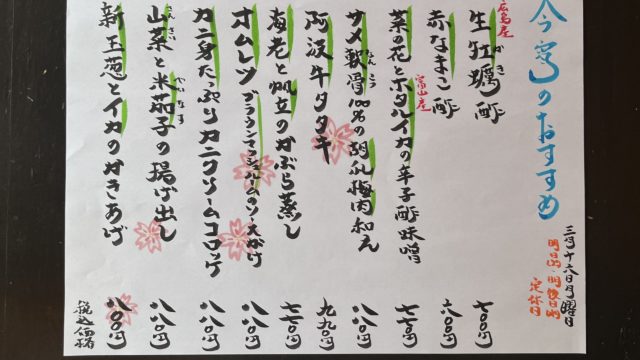 今宵のおすすめ
三月十六日月曜日
定休日
広島産
生牡蠣酢 七〇〇円
赤なまこ酢 六〇〇円
富山産
菜の花とホタルイカの辛子酢味噌 七七〇円
サメ軟骨100%の胡瓜梅肉和え 八八〇円
阿波牛タタキ 九九〇円
海老と帆立のかぶら蒸し 七七〇円
オムレツ ブラウンマッシュルームのソースがけ 八八〇円
カニ身たっぷりカニクリームコロッケ 八八〇円
山菜と米茄子の揚げ出し 八八〇円
新玉葱とイカのかきあげ 八〇〇円
税込価格